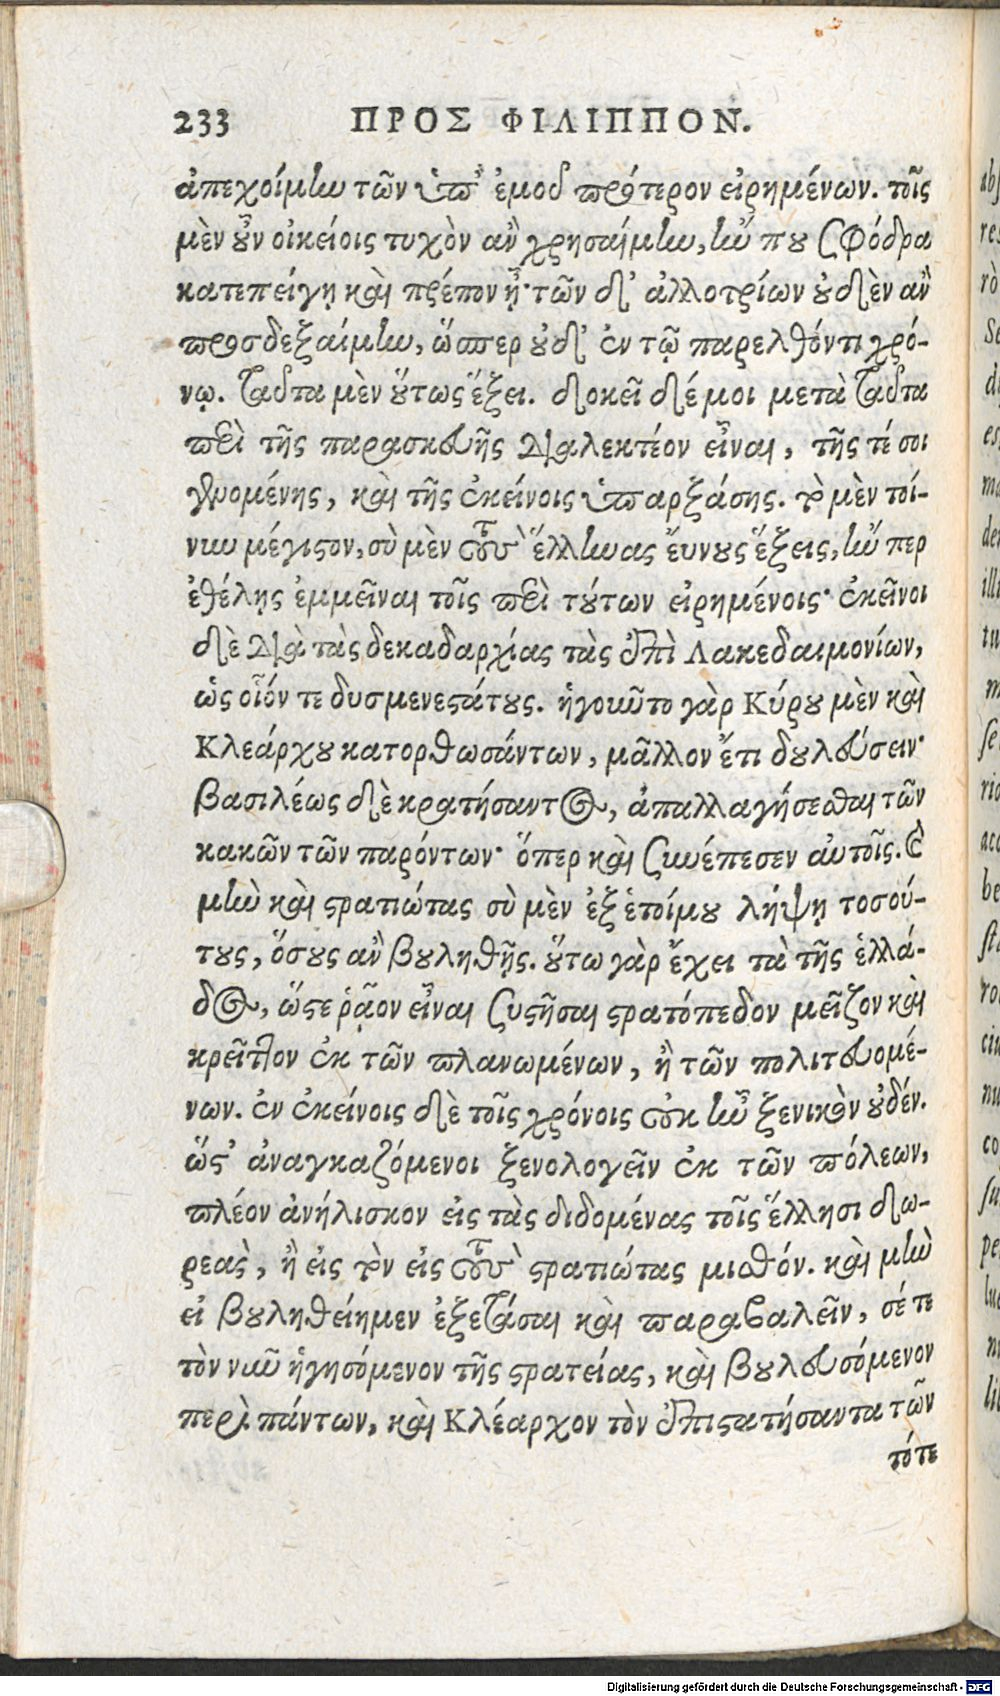 233 ΠΡΟΣ ΦΙΛΙΠΠΟΝ.
ἀπεχοίμην τῶν ὑπ' ἐμοῦ πρότερον εἰρημένων. τοῖς
μὲν οὖν οἰκείοις τυχὸν ἂν χρησαίμην, ἤν που σφόδρα
κατεπείγῃ καὶ πρέπον ᾖ· τῶν δ' ἀλλοτρίων οὐδὲν ἂν
προσδεξαίμην, ὥσπερ οὐδ' ἐν τῷ παρελθόντι χρό-
νῳ. ταῦτα μὲν οὕτως ἕξει. δοκεῖ δέ μοι μετὰ ταῦτα
περὶ τῆς παρασκευῆς διαλεκτέον εἶναι, τῆς τέ σοι
γενομένης, καὶ τῆς ἐκείνοις ὑπαρξάσης. τὸ μὲν τοί-
νυν μέγιστον, σὺ μὲν τοὺς ἕλληνας εὔνους ἕξεις, ἤν περ
ἐθέλῃς ἐμμεῖναι τοῖς περὶ τούτων εἰρημένοις· ἐκεῖνοι
δὲ διὰ τὰς δεκαδαρχίας τὰς ἐπὶ Λακεδαιμονίων,
ὡς οἷόν τε δυσμενεστάτους. ἡγοῦντο γὰρ Κύρου μὲν καὶ
Κλεάρχου κατορθωσάντων, μᾶλλον ἔτι δουλεύσειν·
βασιλέως δὲ κρατήσαντος, ἀπαλλαγήσεσθαι τῶν
κακῶν τῶν παρόντων· ὅπερ καὶ συνέπεσεν αὐτοῖς. καὶ
μὴν καὶ στρατιώτας σὺ μὲν ἐξ ἑτοίμου λήψῃ τοσού-
τους, ὅσους ἂν βουληθῇς. οὕτω γὰρ ἔχει τὰ τῆς ἑλλά-
δος, ὥστε ῥᾷον εἶναι συστῆσαι στρατόπεδον μεῖζον καὶ
κρεῖττον ἐκ τῶν πλανωμένων, ἢ τῶν πολιτευομέ-
νων. ἐν ἐκείνοις δὲ τοῖς χρόνοις οὐκ ἦν ξενικὸν οὐδέν.
ὥστ' ἀναγκαζόμενοι ξενολογεῖν ἐκ τῶν πόλεων,
πλέον ἀνήλισκον εἰς τὰς διδομένας τοῖς ἕλλησι δω-
ρεὰς, ἢ εἰς τὸν εἰς τοὺς στρατιώτας μισθόν. καὶ μὴν
εἰ βουληθείημεν ἐξετάσαι καὶ παραβαλεῖν, σέ τε
τὸν νῦν ἡγησόμενον τῆς στρατείας, καὶ βουλευσόμενον
περὶ πάντων, καὶ Κλέαρχον τὸν ἐπιστατήσαντα τῶν
τότε
Digitalisierung gefördert durch die Deutsche Forschungsgemeinschaft - DFG